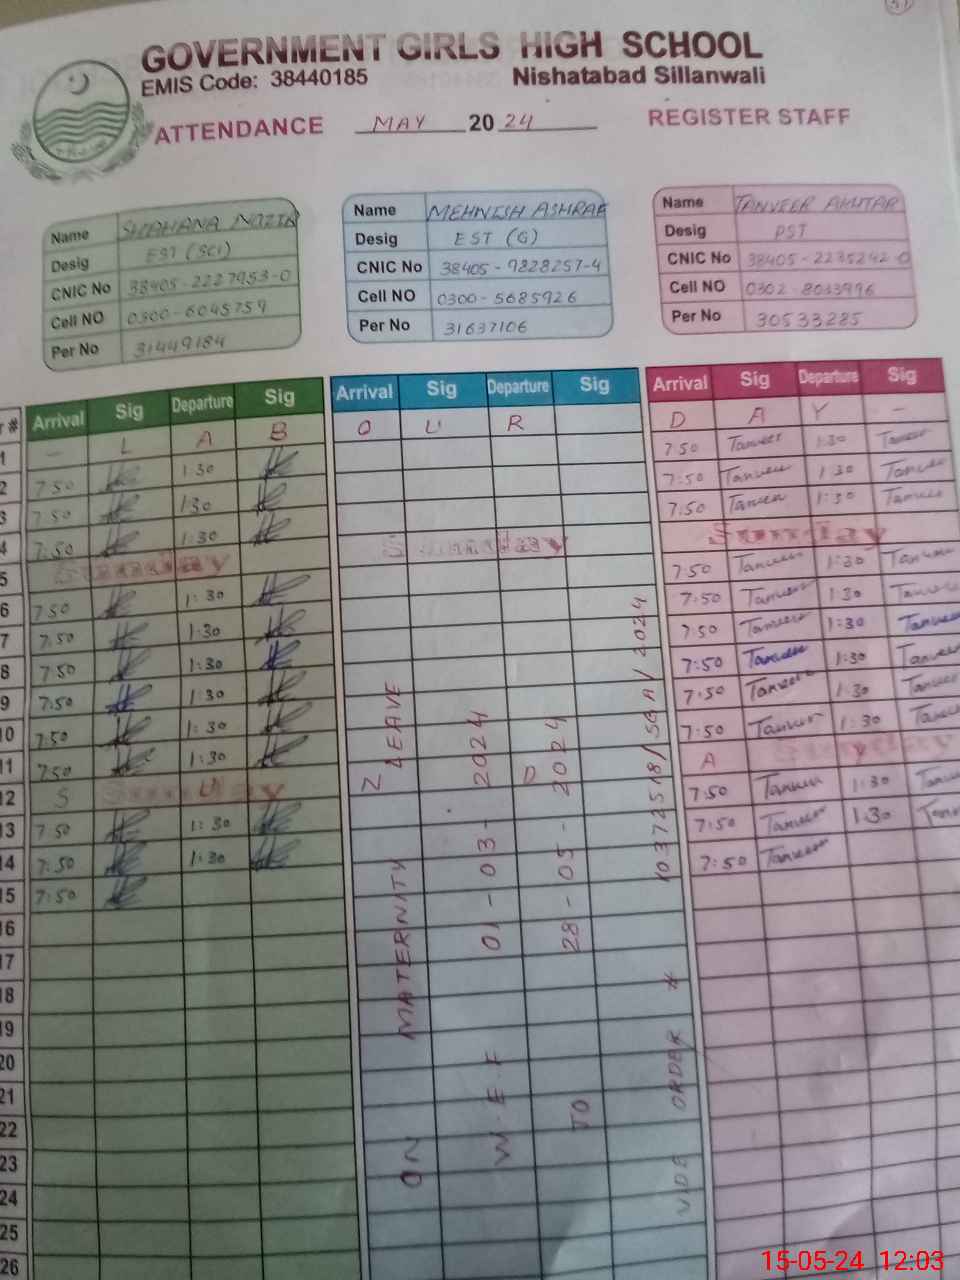 51
GOVERNMENT GIRLS HIGH SCHOOL
EMIS Code: 38440185 Nishatabad Sillanwali
ATTENDANCE MAY 20 24 REGISTER STAFF
Name SHAHANA NAZIR
Desig EST (SCI)
CNIC No 38405-2227953-0
Cell NO 0300-6045759
Per No 31449184
Name MEHNISH ASHRAF
Desig EST (G)
CNIC No 38405-9828257-4
Cell NO 0300-5685926
Per No 31637106
Name TANVEER AKHTAR
Desig PST
CNIC No 38405-2235242-0
Cell NO 0302-8033996
Per No 30533285
r # Arrival Sig Departure Sig Arrival Sig Departure Sig Arrival Sig Departure Sig
1 - L A B O U R D A Y -
2 7:50 1:30 7:50 Tanveer 1:30 Tanveer
3 7:50 1:30 7:50 Tanveer 1:30 Tanveer
4 7:50 1:30 7:50 Tanveer 1:30 Tanveer
5 Sunday Sunday Sunday
6 7:50 1:30 7:50 Tanveer 1:30 Tanveer
7 7:50 1:30 7:50 Tanveer 1:30 Tanveer
8 7:50 1:30 7:50 Tanveer 1:30 Tanveer
9 7:50 1:30 7:50 Tanveer 1:30 Tanveer
10 7:50 1:30 7:50 Tanveer 1:30 Tanveer
11 7:50 1:30 7:50 Tanveer 1:30 Tanveer
12 S Sunday U N D A Sunday Y
13 7:50 1:30 7:50 Tanveer 1:30 Tanveer
14 7:50 1:30 7:50 Tanveer 1:30 Tanveer
15 7:50 7:50 Tanveer
16
17
18
19
20
21
22
23
24
25
26
ON MATERNITY LEAVE
W.E.F 01-03-2024
TO 28-05-2024
ORDER # 10372518/SGA/2024
15-05-24 12:03